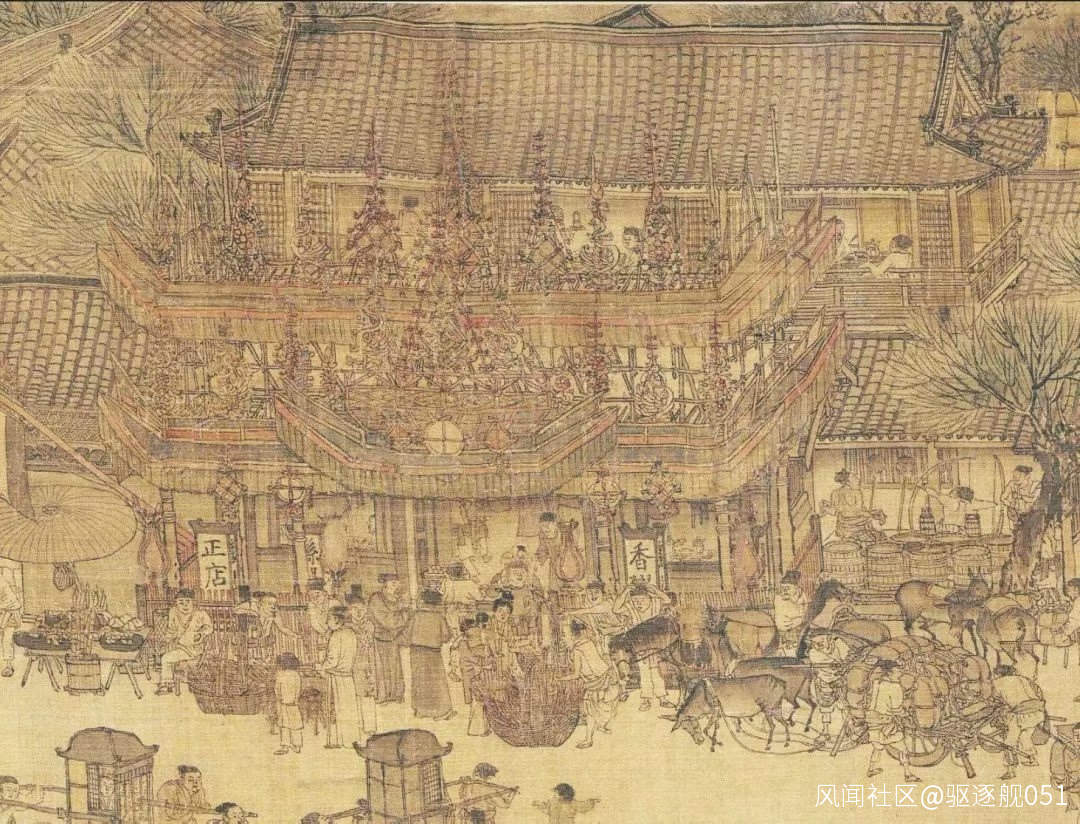 正店
香
风闻社区@驱逐舰051